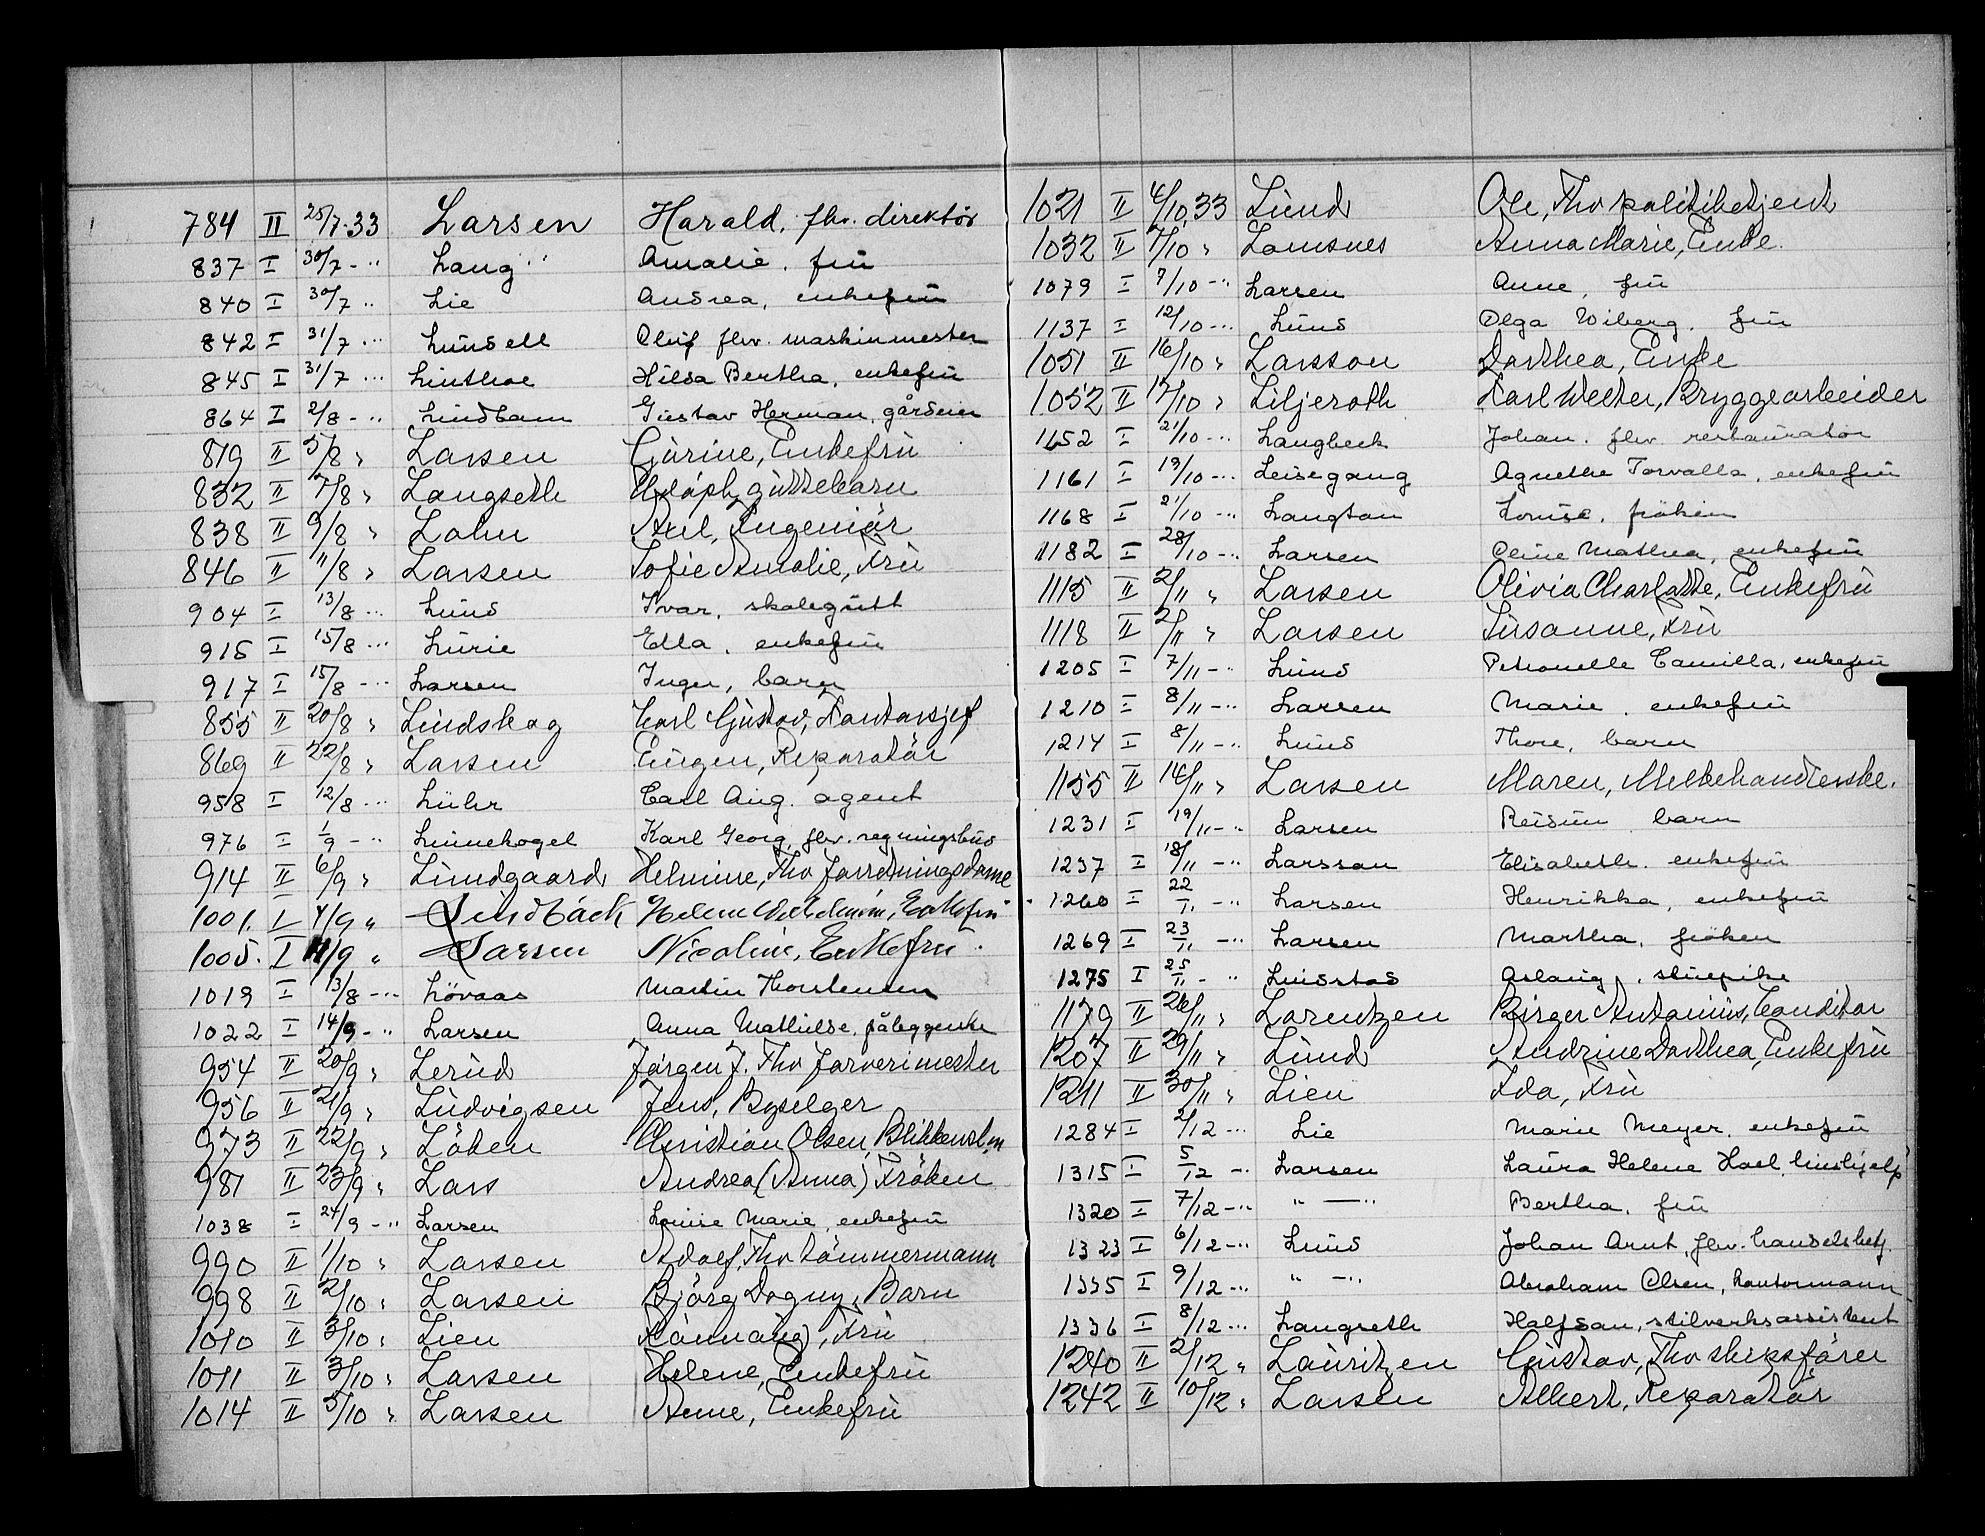 784 II 25/7-33 Larsen Harald, fhv. direktör
837 I 30/7 -" Lang Amalie, frü
840 I 30/7 " Lie Andrea, enkefrü
842 I 31/7 -" Lündell Oluf fhv. maskinmester
845 I 31/7 -" Linthoe Hilda Bertha, enkefrü
864 I 2/8 -" Lindbam Güstav Herman, gårdeier
819 II 5/8 " Larsen Gürine, Enkefrü
832 II 7/8 " Langseth Adolph, güttebarn
838 II 9/8 " Lohn Axel, Ingeniör
846 II 11/8 " Larsen Sofie Amalie, Frü
904 I 13/8 -" Lünd Ivar, skolegütt
915 I 15/8 -" Lürie Ella, enkefrü
917 I 15/8 -" Larsen Inger, barn
855 II 20/8 " Lindskog Karl Güstav, Kontorsjef
869 II 22/8 " Larsen Eügen, Reparatör
958 I 12/8 -" Lühr Carl Aug. agent
976 I 1/9 -" Linnekogel Karl Georg, fhv. regningsbüd
914 II 6/9 " Lündgaard Helmine, Fhv forretningsdame
1001. I 4/9 " Lindbäck Helene Wilhelmine, Enkefru
1005. I 11/9 " Larsen Nicoline, Enkefru.
1019 I 13/8 -" Lövaas Martin Thorstensen
1022 I 14/9 -" Larsen Anna Mathilde, pålæggerske
954 II 20/9 " Lerüd Jörgen J. Fhv farverimester
956 II 21/9 " Lüdvigsen Jens, Byselger
973 II 22/9 " Löken Christian Olsen, Blikkensl.m
981 II 23/9 " Lars Andrea (Anna) Fröken
1038 I 24/9 -" Larsen Louise Marie, enkefrü
990 II 1/10 " Larsen Adolf, Fhv tömmermann
998 II 2/10 " Larsen Björg Dagny, Barn
1010 II 3/10 " Lien Rännaug, Frü
1011 II 3/10 " Larsen Helene, Enkefrü
1014 II 5/10 " Larsen Anne, Enkefrü
1021 II 4/10 33 Lünd Ole, Fhv politibetjent
1032 II 7/10 " Lomsnes Anna Marie, Enke.
1079 I 7/10 -" Larsen Anne, frü
1137 I 12/10 -" Lünd Olga Wiberg, frü
1051 II 16/10 " Larsson Dorthea, Enke
1052 II 17/10 " Liljeroth Karl Welter, Bryggearbeider
1152 I 21/10 -" Langbeck Johan, fhv restauratör
1161 I 19/10 -" Leisegang Agnethe Torvalla, enkefrü
1168 I 21/10 -" Langton Louise, fröken
1182 I 28/10 -" Larsen Oline Mathea, enkefrü
1115 II 2/11 " Larsen Olivia Charlotte, Enkefrü
1118 II 2/11 " Larsen Süsanne, Frü
1205 I 7/11 -" Lünd Petronelle Camilla, enkefrü
1210 I 8/11 -" Larsen Marie, enkefrü
1214 I 8/11 -" Lünd Thore, barn
1155 II 14/11 " Larsen Maren, Melkehandlerske.
1231 I 19/11 -" Larsen Reidün barn
1237 I 18/11 -" Larsson Elisabeth, enkefrü
1260 I 22/11 -" Larsen Henrikka, enkefrü
1269 I 23/11 -" Larsen Martha, fröken
1275 I 25/11 - " Lindstad Aslaüg, stuepike
1179 II 26/11 " Lorentzen Birger Antonius, Conditor
1207 II 29/11 " Lünd Andrine Dorthea, Enkefrü
1211 II 30/11 " Lien Ida, Frü
1284 I 2/12 -" Lie Marie Meyer, enkefrü
1315 I 5/12 -" Larsen Laura Helene Hoel, hüshjelp
1320 I 7/12 -" " —" Bertha, frü
1323 I 6/12 -" Lünd Johan Arnt, fhv. handelsbetj.
1335 I 9/12 -" " —" Abraham Olsen, kontormann
1336 I 8/12 -" Langseth Halfdan, stilverksassistent
1240 II 2/12 " Lauritzen Güstav, Fhv skipsförer
1242 II 10/12 " Larsen Albert, Reparatör